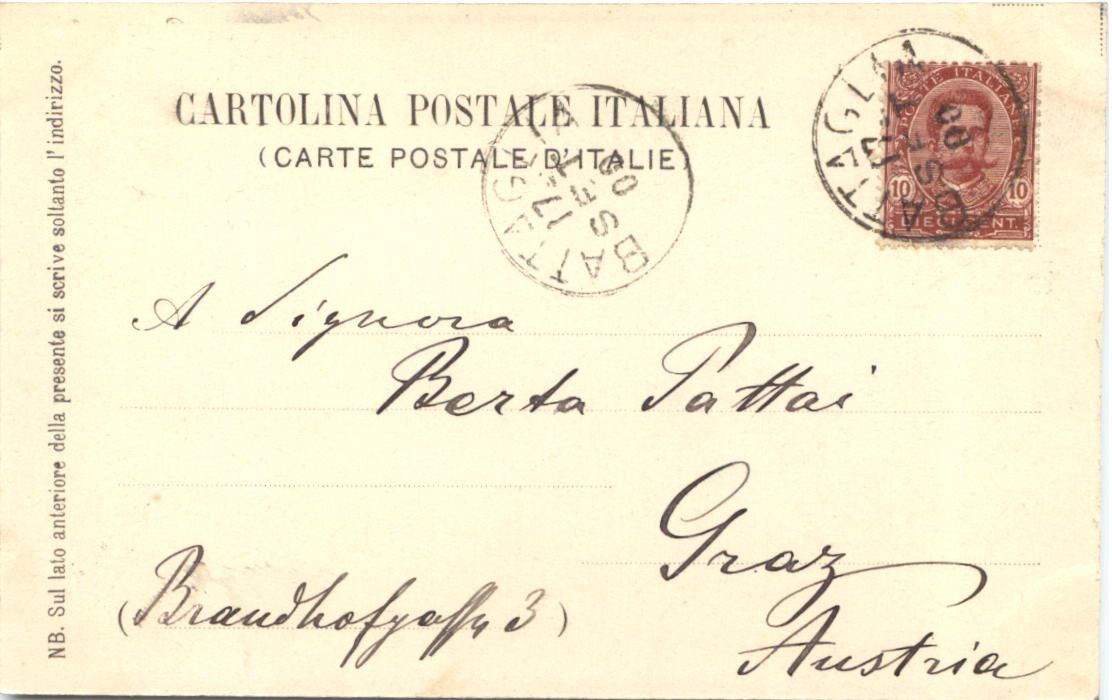 CARTOLINA POSTALE ITALIANA
(CARTE POSTALE D'ITALIE)
NB. Sul lato anteriore della presente si scrive soltanto l'indirizzo.
POSTE ITALIANE
10 10
DIECI CENT.
BATTAGLIA
BATTAGLIA
17
00
A Signora
Berta Pattai
Graz
(Brandhofgasse 3)
Austria